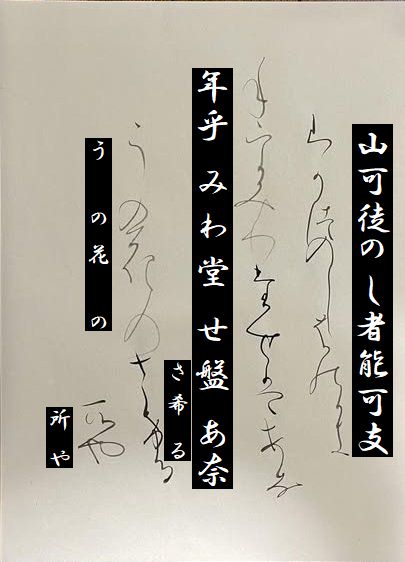 山可徒のし者能可支
年乎みわ堂せ盤あ奈
うの花の
さ希る
所や